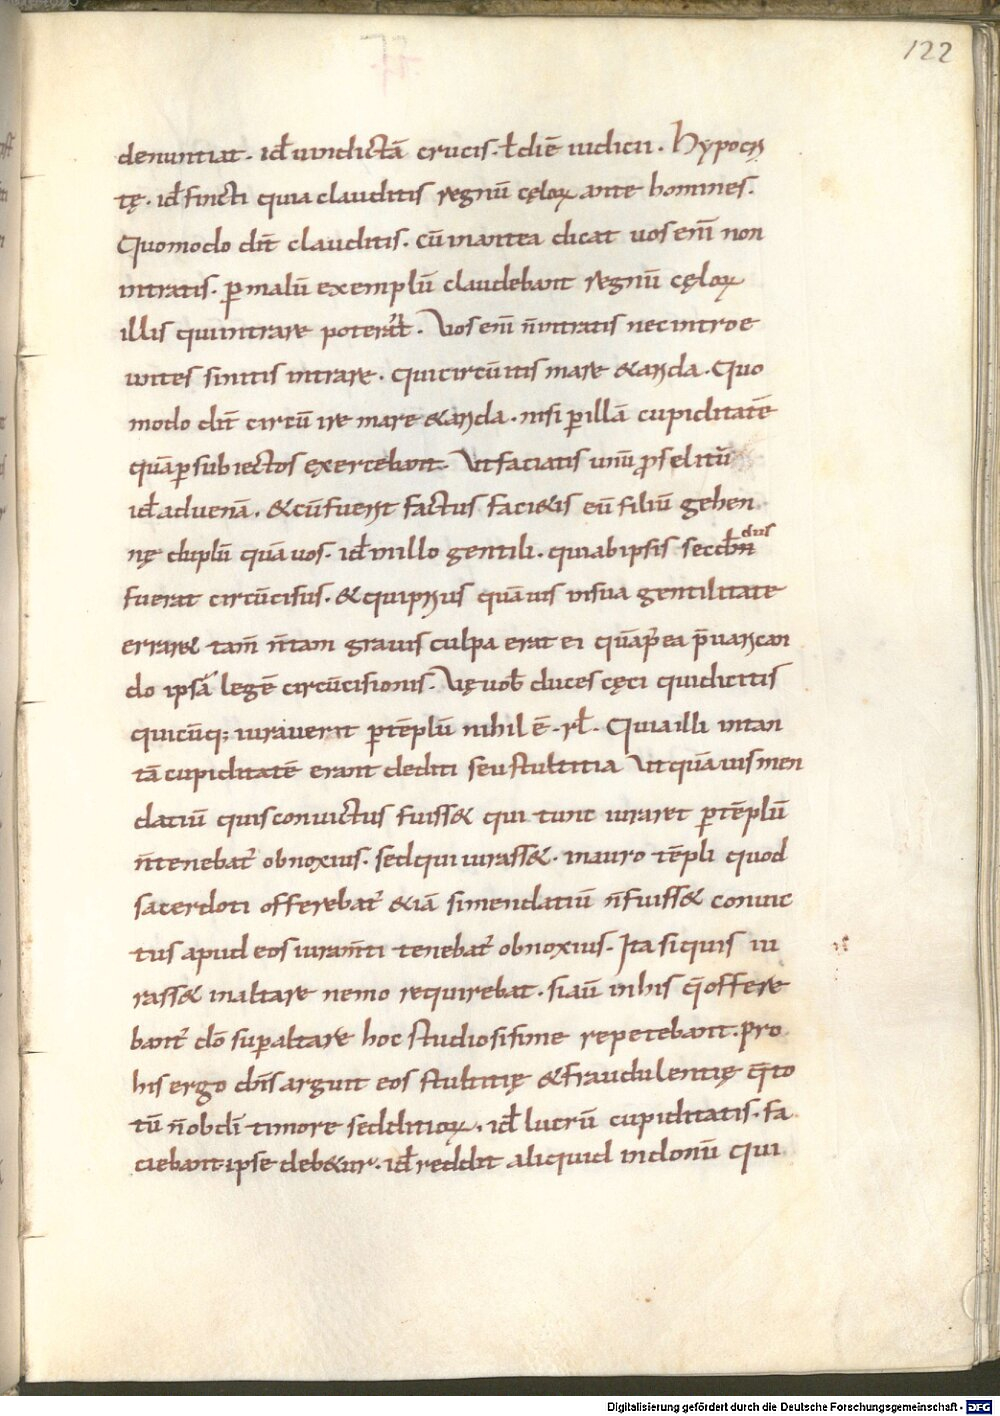 122
denuntiat. id uindictā crucis. ł diē iudicii. hypocri
tę. id ficti quia clauditis regnū cęloꝝ ante homines.
Quomodo dic̄ clauditis. cū in antea dicat uos eni̅ non
intratis. ꝑ malū exemplū claudebant regnū cęloꝝ
illis qui intrare poterāt. Vos eni̅ n̅ intratis nec introe
untes sinitis intrare. qui circūitis mare & arida. Quo
modo dic̄ circū ire mare & arida. nisi ꝑ illā cupiditatē
quā ꝑ subiectos exercebant. Ut faciatis unū ꝓselitū
id aduenā. & cū fuerit factus faci&is eū filiū gehen
nę duplū quā uos. id in illo gentili. qui ab ipsis seccūn dus
fuerat circūcisus. & qui prius quāuis in sua gentilitate
errar& tam̄ n̅ tam grauis culpa erat ei quā p̄ ea p̄uarican
do ipsā legē circūcisionis. Vę uob̄ duces cęci qui dicitis
quicūq; iurauerit ꝑ tēplū nihil ē. rł. Quia illi in tan
tā cupiditatē erant dediti seu stultitia ut quāuis men
datiū quis conuictus fuiss& qui tunc iuraret ꝑ tēplū
n̅ tenebat̄ obnoxius. sed qui iurass&. in auro tēpli quod
sacerdoti offerebat̄ &iā si mendatiū n̅ fuiss& conuic
tus apud eos iuram̅ti tenebat̄ obnoxius. Ita si quis iu
rass& in altare nemo requirebat. si aū in his q̄ offere
bant̄ dō suꝑ altare hoc studiosisime repetebant. pro
his ergo dn̄s arguit eos stultitię & fraudulentię q̄ to
tū n̅ ob di̅ timore sed ditioꝝ. id lucrū cupiditatis. fa
ciebant ipse deb&ur. id reddit aliquid in donū qui
Digitalisierung gefördert durch die Deutsche Forschungsgemeinschaft - DFG